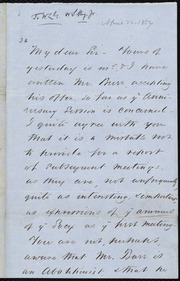 My dear Sir - Yours of
yesterday is rec'd & I have
written Mr. Burr accepting
his offer, so far as ye Anni-
versary Session is concerned
I quite agree with you
that it is a mistake not
to provide for a report
of subsequent meetings,
as they are, not unfrequently
quite as interesting &
as expressions of ye animus
of ye Socy as ye first meeting.
You are not perhaps,
aware that Mr. Burr is
an Abolitionist & that he